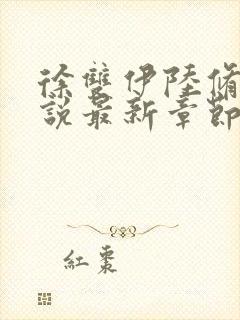 徐雙伊陸脩
說最新章節
紅棗